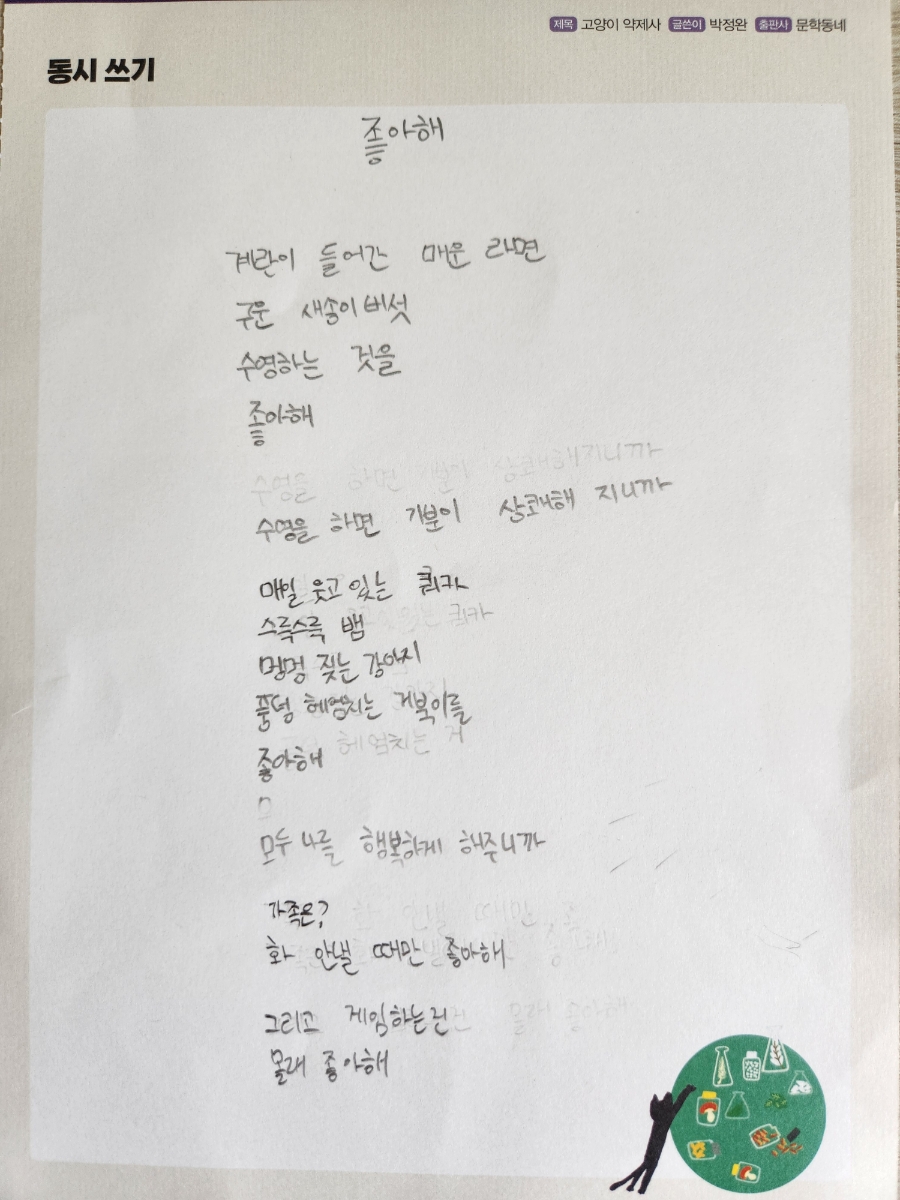 제목 고양이 약제사 글쓴이 박정완 출판사 문학동네
동시 쓰기
좋아해
계란이 들어간 매운 라면
구운 새송이버섯
수영하는 것을
좋아해
수영을 하면 기분이 상쾌해지니까
수영을 하면 기분이 상쾌해 지니까
매일 웃고 있는 쿼카
스륵스륵 뱀
멍멍 짖는 강아지
풍덩 헤엄치는 거북이를
좋아해
모두 나를 행복하게 해주니까
가족은?
화 안낼 때만 좋아해
그리고 게임하는건
몰래 좋아해